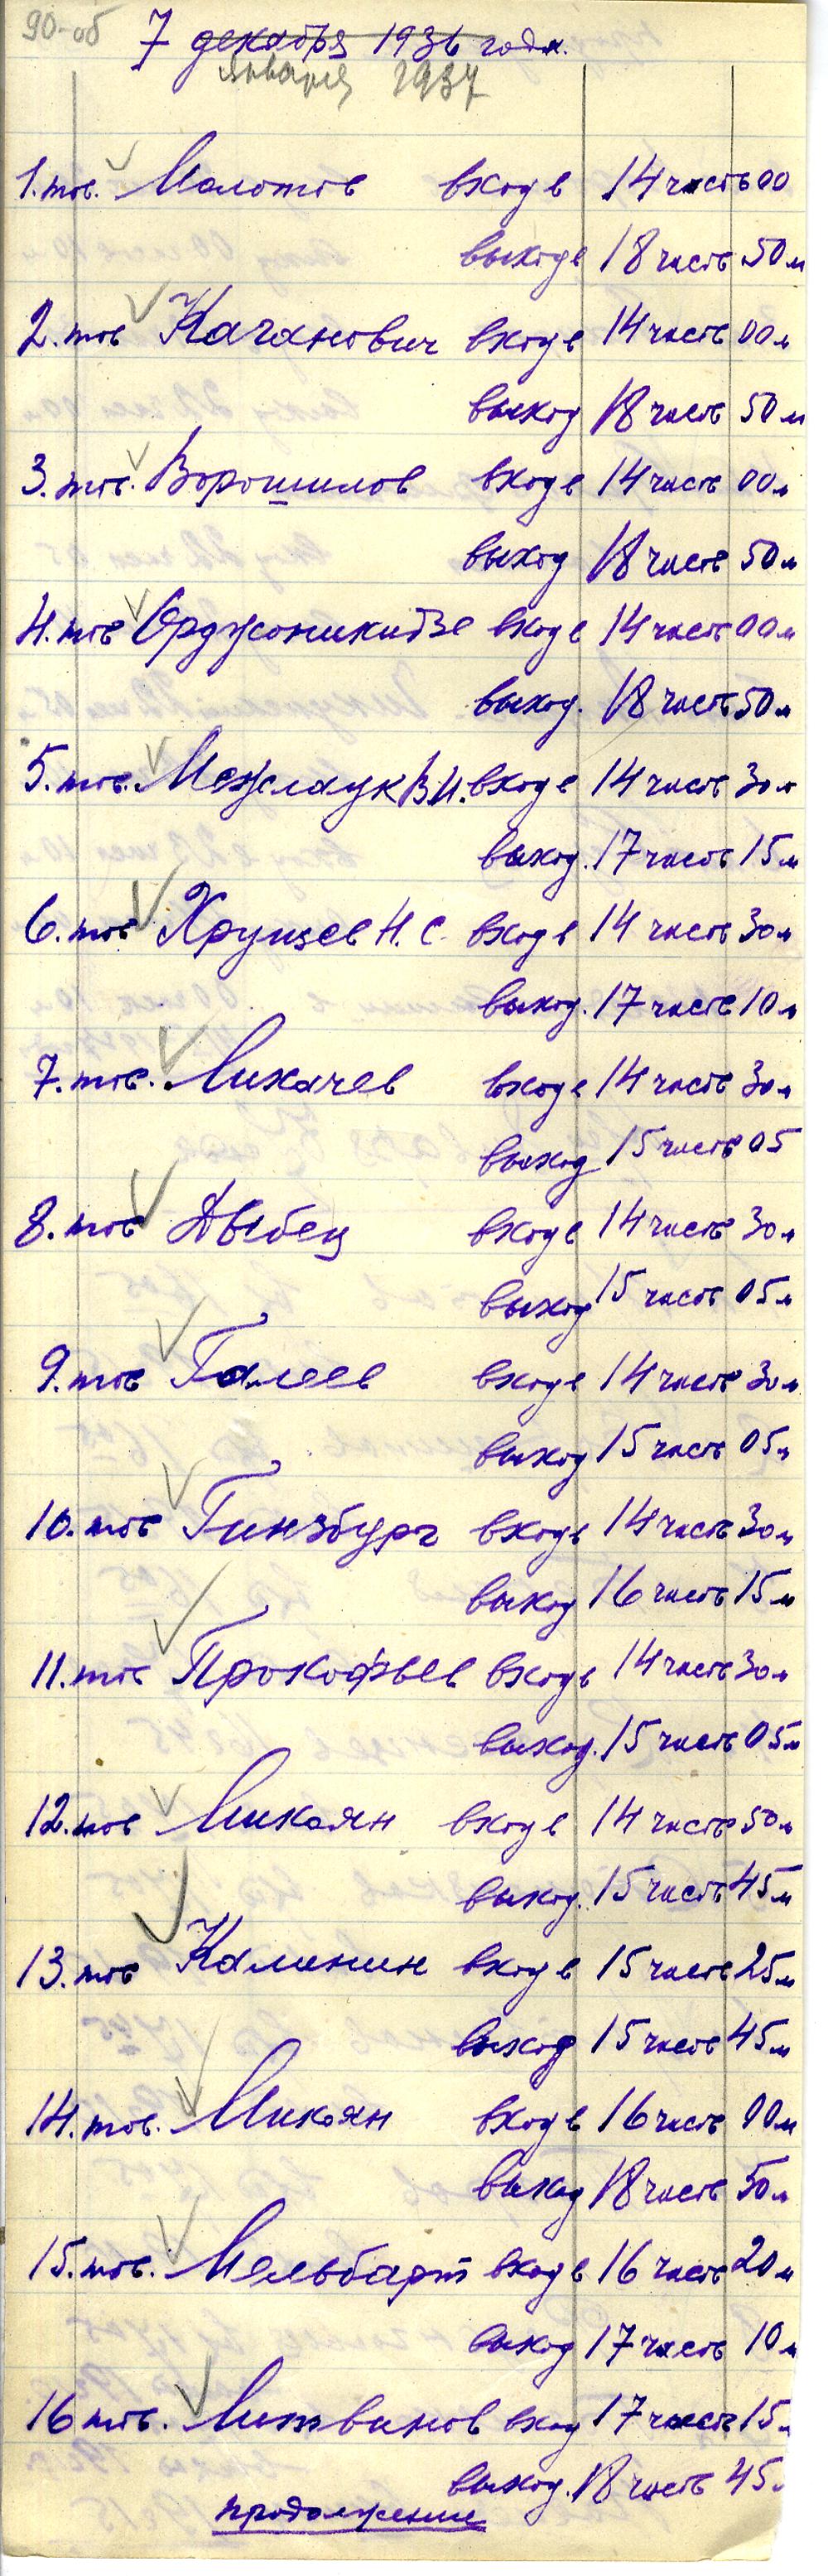 90-об
7 декабря 1936 года.
января 1937
1. тов. Молотов вход в 14 часов 00
выход в 18 часов 50 м
2. тов Каганович вход в 14 часов 00 м
выход 18 часов 50 м
3. тов. Ворошилов вход в 14 часов 00 м
выход 18 часов 50 м
4. тов Орджоникидзе вход в 14 часов 00 м
выход. 18 часов 50 м
5. тов. Межлаук В.И. вход в 14 часов 30 м
выход. 17 часов 15 м
6. тов Хрущев Н.С. вход в 14 часов 30 м
выход. 17 часов 10 м
7. тов. Лихачев вход в 14 часов 30 м
выход 15 часов 05
8. тов Дыбец вход в 14 часов 30 м
выход 15 часов 05 м
9. тов вход в 14 часов 30 м
выход 15 часов 05 м
10. тов Гинзбург вход в 14 часов 30 м
выход 16 часов 15 м
11. тов Прокофьев вход в 14 часов 30 м
выход. 15 часов 05 м
12. тов Микоян вход в 14 часов 50 м
выход. 15 часов 45 м
13. тов Калинин вход в 15 часов 25 м
выход 15 часов 45 м
14. тов. Микоян вход в 16 часов 00 м
выход 18 часов 50 м
15. тов. Мельбарт вход в 16 часов 20 м
выход 17 часов 10 м
16 тов. Литвинов вход 17 часов 15
выход. 18 часов 45
продолжение